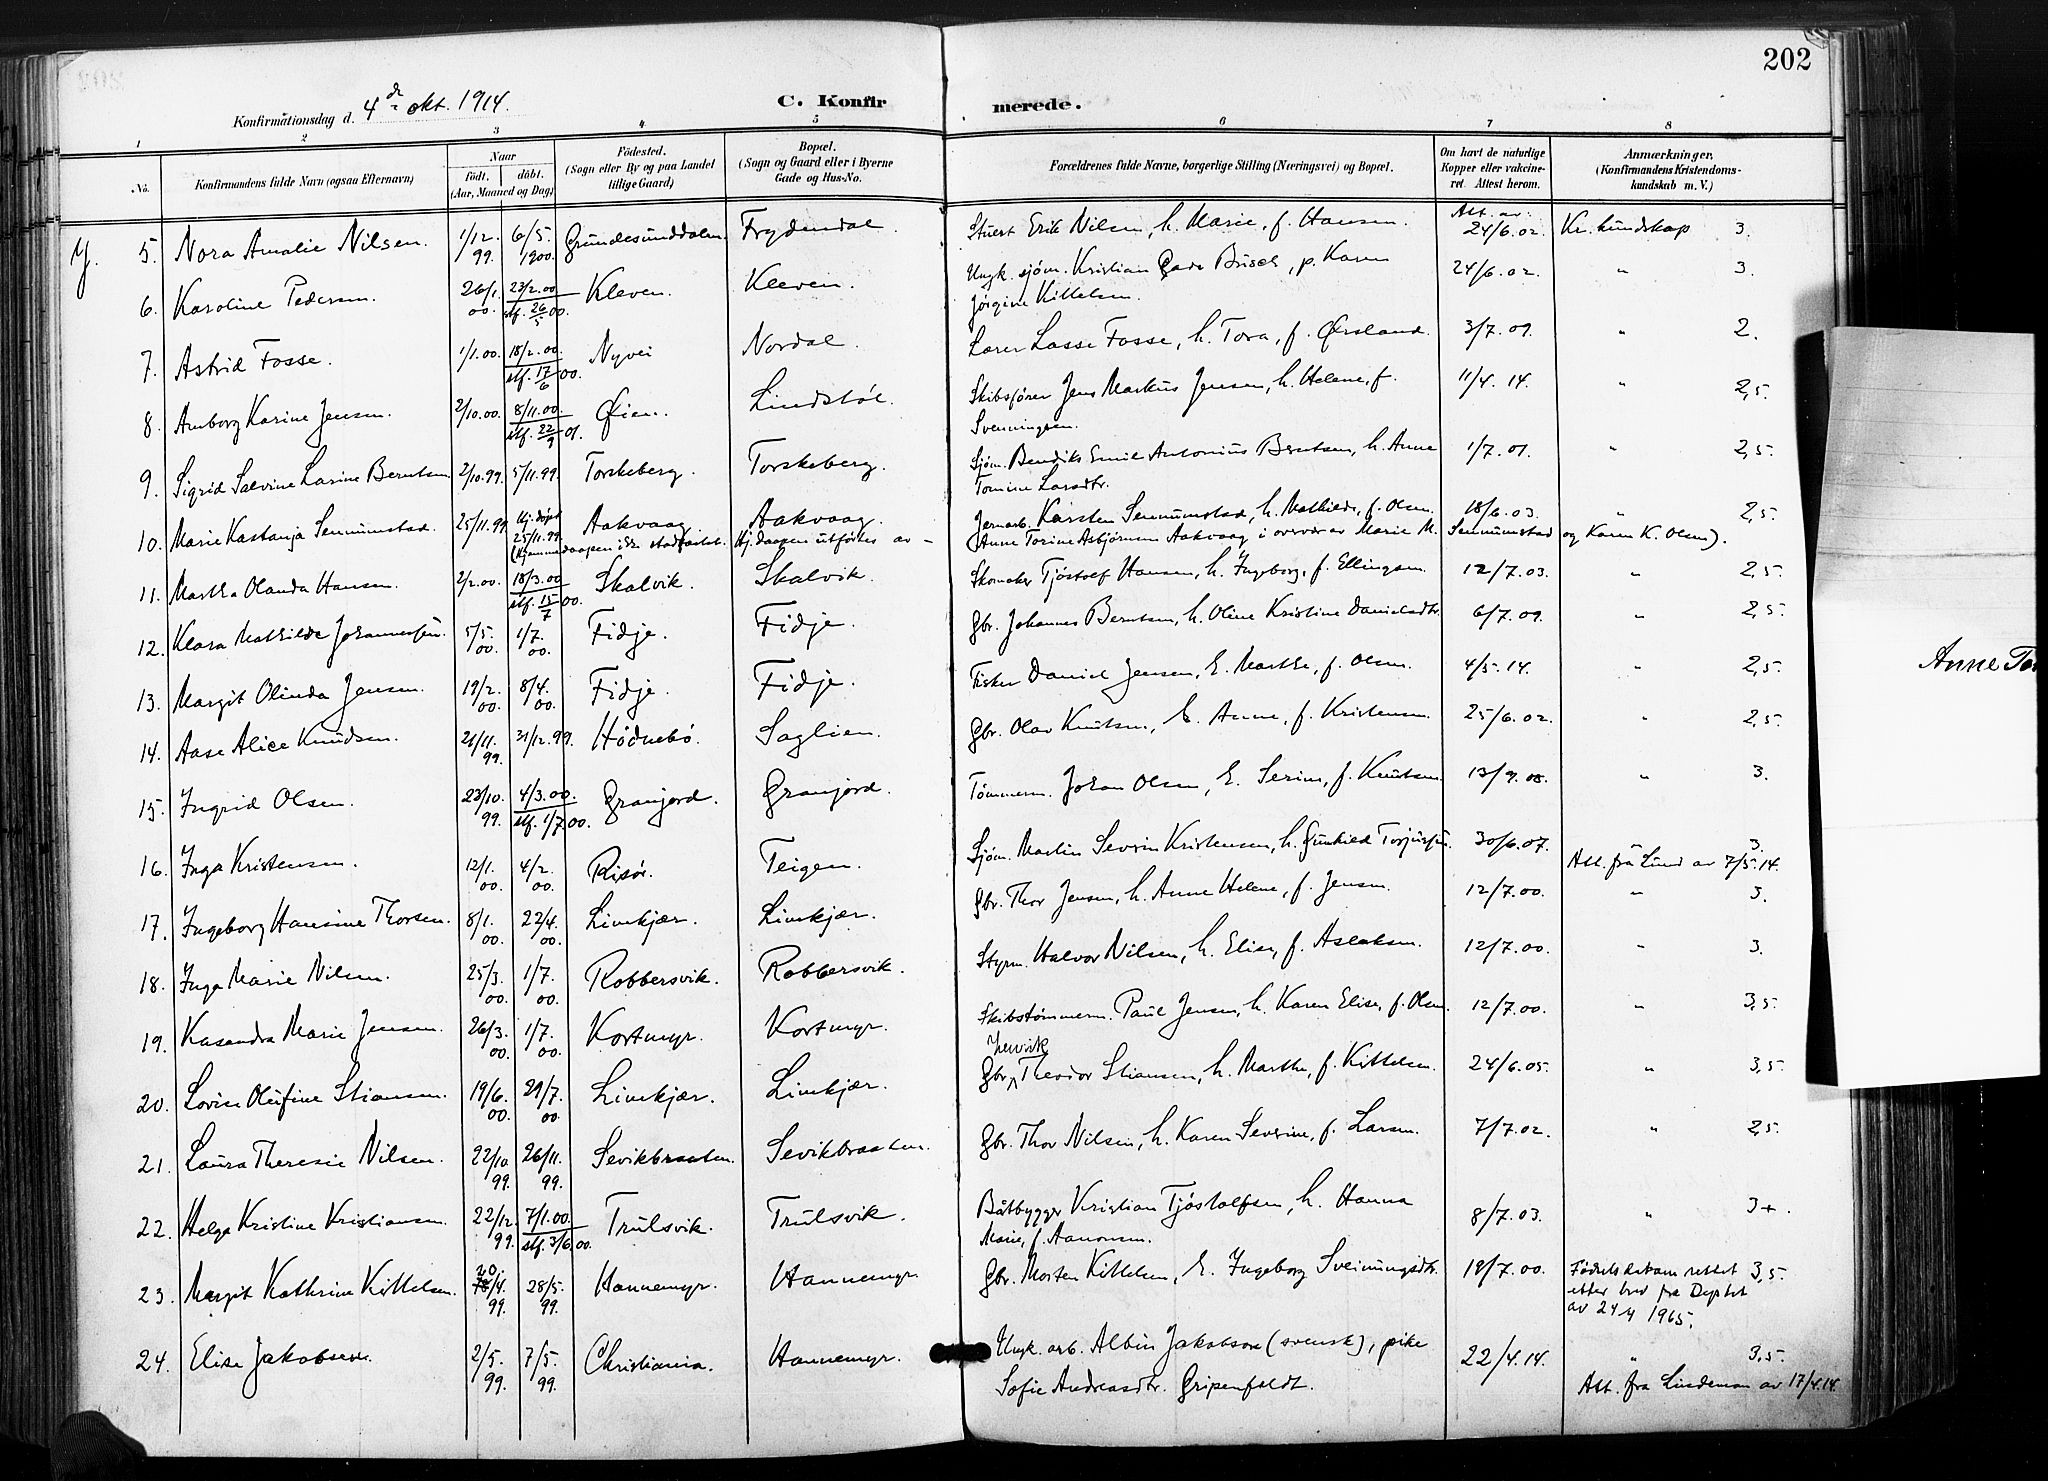 202
Konfirmationsdag d. 4de okt. 1914.
C. Konfirmerede.
1 2 3 4 5 6 7 8
No. | Konfirmandens fulde Navn (ogsaa Efternavn) | Naar født. døbt. (Aar, Maaned og Dag) | Fødested. (Sogn eller By og paa Landet tillige Gaard) | Bopæl. (Sogn og Gaard eller i Byerne Gade og Hus-No. | Forældrenes fulde Navne, borgerlige Stilling (Næringsvei) og Bopæl. | Om havt de naturlige Kopper eller vakcineret. Attest herom. | Anmærkninger, (Konfirmandens Kristendomskundskab m. V.)
5. Nora Amalie Nilsen. 1/12. 99. 6/5. 1900. Grundesunddalen Frydendal Stuert Erik Nilsen, h. Marie, f. Hansen. Att. av: 24/6.02. Kr. kundskap 3.
6. Karoline Pedersen. 26/1. 00. 23/2.00 stf. 26/5 00. Kleven. Kleven. Ungk. sjøm. Kristian Gade Busch, p. Karen Jørgine Kittelsen. 24/6.02. " 3.
7. Astrid Fosse. 1/1.00. 18/2.00. stf. 17/6 00. Nyvei Nordal. Lærer Lasse Fosse, h. Tora, f. Øisland. 3/7.09. " 2.
8. Amborg Karine Jensen. 2/10.00. 8/11.00. stf. 22/9 01. Øien. Lindstøl. Skibsfører Jens Markus Jensen, h. Helene, f. Svenningsen. 11/4.14. " 2,5.
9. Sigrid Salvine Larine Berntsen 2/10.99. 5/11.99. Torskeberg. Torskeberg. Sjøm. Bendiks Emil Antonius Berntsen, h. Anne Tomine Larsdtr. 1/7.01. " 2,5.
10. Marie Kastanja Sennumstad. 25/11.99. Hj. døpt 25/11.99. Aakvaag. Aakvaag. Jernarb. Karsten Sennumstad, h. Mathilde, f. Olsen. 18/6.03. " 2,5.
(Hjemmedaapen ikke stadfæstet. Hj. daapen utførtes av - (Anne Torine Asbjørnsen Aakvaag i overvær av Marie M. Sennumstad og Karen K. Olsen).
11. Martha Olanda Hansen. 2/2.00. 18/3.00 stf. 15/7 00. Skalvik. Skalvik. Skomaker Tjøstolf Hansen, h. Ingeborg, f. Ellingsen. 12/7.03. " 2,5.
12. Klara Mathilde Johannessen. 5/5. 00. 1/7. 00. Fidje. Fidje. Gbr. Johannes Berntsen, h. Oline Kristine Danielsdtr. 6/7.09. " 2,5.
13. Margit Olinda Jensen. 19/2. 00. 8/4. 00. Fidje. Fidje. Fisker Daniel Jensen, E. Marthe, f. Olsen. 4/5.14. " 2,5.
14. Aase Alice Knudsen. 21/11. 99. 31/12.99. Hødnebø. Saglien. Gbr. Olav Knutsen, E. Anne, f. Kristensen. 25/6.02. " 2,5.
15. Ingrid Olsen. 23/10. 99. 4/3.00. stf. 1/7.00. Granjord. Granjord. Tømmerm. Johan Olsen, E. Serine, f. Knutsen. 13/9.08. " 3.
16. Inga Kristensen. 12/1. 00. 4/2. 00. Risør. Teigen. Sjøm. Martin Severin Kristensen, h. Gunhild Torjusen. 30/6.07. " 3. Att. fra Lund av 7/5.14.
17. Ingeborg Hansine Thorsen. 8/1. 00. 22/4. 00. Limkjær. Limkjær. Gbr. Thor Jensen, h. Anne Helene, f. Jensen. 12/7.00. " 3.
18. Inga Marie Nilsen. 25/3. 00. 1/7. 00. Robbersvik. Robbersvik. Styrm. Halvor Nilsen, h. Elise, f. Aslaksen. 12/7.00. " 3.
19. Kasandra Marie Jensen. 26/3. 00. 1/7. 00. Kortmyr. Kortmyr. Skibstømmerm. Paul Jensen, h. Karen Elise, f. Olsen. 12/7.00. " 3,5.
20. Lovise Olufine Stiansen. 19/6. 00. 29/7. 00. Limkjær. Limkjær. Gbr. Theodor Stiansen, h. Marthe, f. Kittelsen. 24/6.05. " 3,5.
21. Laura Theresie Nilsen. 22/10. 99. 26/11. 99. Sevikbraaten. Sevikbraaten. Gbr. Thor Nilsen, h. Karen Severine, f. Larsen. 7/7.02. " 2,5.
22. Helga Kristine Kristiansen. 22/12. 99. 7/1.00. stf. 3/6.00. Trulsvik. Trulsvik. Båtbygger Kristian Tjøstolfsen, h. Hanna Marie, f. Aanonsen. 8/7.03. " 3+.
23. Margit Kathrine Kittelsen. 20. /4. 99. 28/5. 99. Hannemyr. Hannemyr Gbr. Morten Kittelsen, E. Ingeborg Sveinungsdtr. 19/7.00. Fødselsdatoen rettet etter brev fra Deptet av 24/4 1965. 3,5.
24. Elise Jakobsen. 2/5. 99. 7/5. 99. Christiania. Hannemyr. Ungk. arb. Albin Jakobson (svensk), pike Sofie Andreasdtr. Gripenfeldt. 22/4.14. " 3,5. Att. fra Lindeman av 17/4.14.
Anne Tor